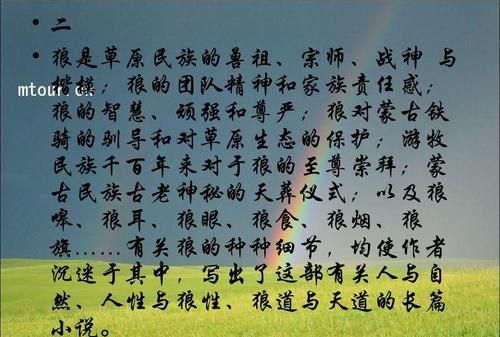 二
狼是草原民族的兽祖、宗师、战神 与
楷模；狼的团队精神和家族责任感；
mtour.cn
狼的智慧、顽强和尊严；狼对蒙古铁
骑的驯导和对草原生态的保护；游牧
民族千百年来对于狼的至尊崇拜；蒙
古民族古老神秘的天葬仪式；以及狼
嗥、狼耳、狼眼、狼食、狼烟、狼
旗……有关狼的种种细节，均使作者
沉迷于其中，写出了这部有关人与自
然、人性与狼性、狼道与天道的长篇
小说。